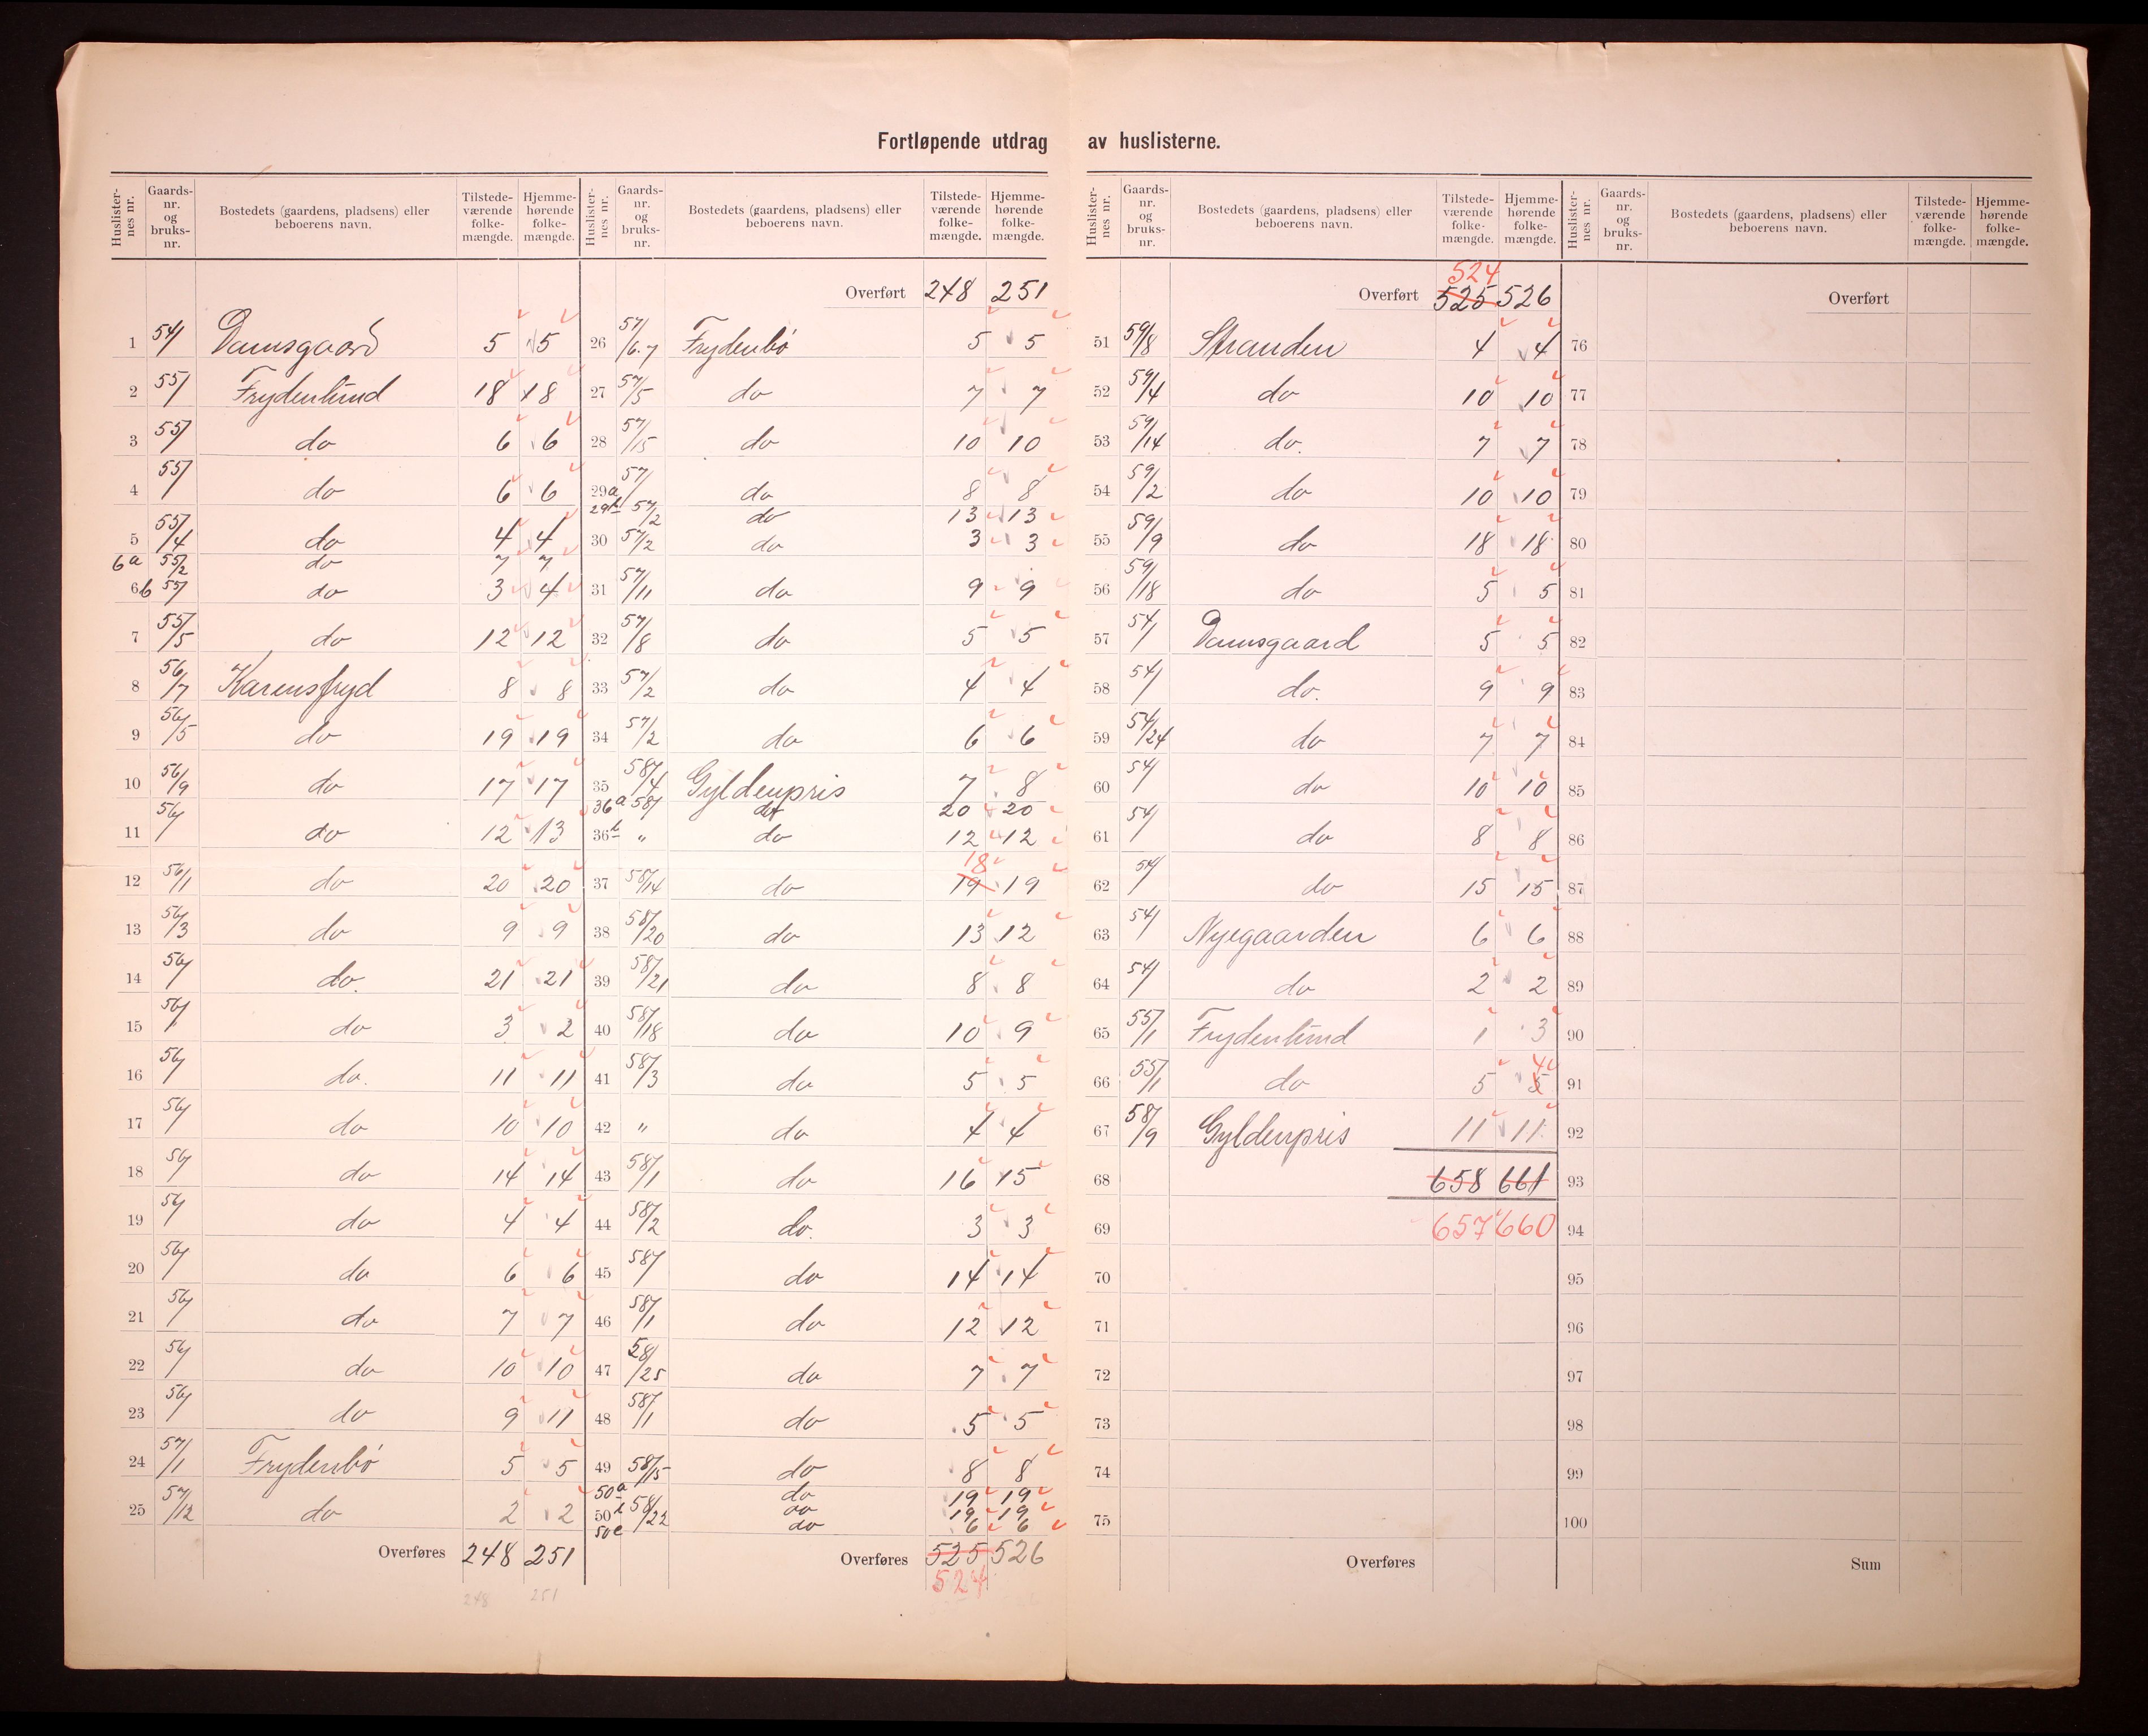 Fortløpende utdrag av huslisterne.
Huslisternes nr. Gaards-nr. og bruks-nr. Bostedets (gaardens, pladsens) eller beboerens navn. Tilstede-værende folke-mængde. Hjemme-hørende folke-mængde.
1 54/ Damsgaard 5 5
2 55/ Frydenlund 18 18
3 55/ do 6 6
4 55/ do 6 6
5 55/4 do 4 4
6a 55/2 do 7 7
6b 55/ do 3 4
7 55/5 do 12 12
8 56/7 Karensfryd 8 8
9 56/5 do 19 19
10 56/9 do 17 17
11 56/ do 12 13
12 56/1 do 20 20
13 56/3 do 9 9
14 56/ do. 21 21
15 56/ do 3 2
16 56/ do. 11 11
17 56/ do 10 10
18 56/ do 14 14
19 56/ do 4 4
20 56/ do 6 6
21 56/ do 7 7
22 56/ do 10 10
23 56/ do 9 11
24 57/1 Frydenbö 5 5
25 57/12 do 2 2
Overføres 248 251
248 251
Huslisternes nr. Gaards-nr. og bruks-nr. Bostedets (gaardens, pladsens) eller beboerens navn. Tilstede-værende folke-mængde. Hjemme-hørende folke-mængde.
Overført 248 251
26 57/6.7 Frydenbö 5 5
27 57/5 do 7 7
28 57/15 do 10 10
29a 57/ do 8 8
29b 57/2 do 13 13
30 57/2 do 3 3
31 57/11 do 9 9
32 57/8 do 5 5
33 57/2 do 4 4
34 57/2 do 6 6
35 58/4 Gyldenpris 7 8
36a 58/ do 20 20
36b " do 12 12
18
37 58/14 do 19 19
38 58/20 do 13 12
39 58/21 do 8 8
40 58/18 do 10 9
41 58/3 do 5 5
42 " do 4 4
43 58/1 do 16 15
44 58/2 do. 3 3
45 58/ do 14 14
46 58/1 do 12 12
47 58/25 do 7 7
48 58/1 do 5 5
49 58/15 do 8 8
50a do 19 19
50b 58/22 do 19 19
50c do 6 6
Overføres 525 526
524
Huslisternes nr. Gaards-nr. og bruks-nr. Bostedets (gaardens, pladsens) eller beboerens navn. Tilstede-værende folke-mængde. Hjemme-hørende folke-mængde.
524
Overført 525 526
51 59/8 Stranden 4 4
52 59/4 do 10 10
53 59/14 do. 7 7
54 59/2 do 10 10
55 59/9 do 18 18
56 59/18 do 5 5
57 54/ Damsgaard 5 5
58 54/ do. 9 9
59 54/24 do 7 7
60 54/ do 10 10
61 54/ do 8 8
62 54/ do 15 15
63 54/ Nyegaarden 6 6
64 54/ do 2 2
65 55/1 Frydenlund 1 3
4
66 55/1 do 5 5
67 58/9 Gyldenpris 11 11
68 658 661
69 657 660
70
71
72
73
74
75
Overføres
Huslisternes nr. Gaards-nr. og bruks-nr. Bostedets (gaardens, pladsens) eller beboerens navn. Tilstede-værende folke-mængde. Hjemme-hørende folke-mængde.
Overført
76
77
78
79
80
81
82
83
84
85
86
87
88
89
90
91
92
93
94
95
96
97
98
99
100
Sum